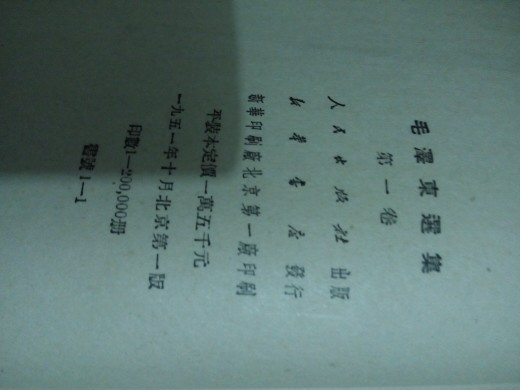 毛澤東選集
第一卷
人民出版社 出版
新華書店 發行
新華印刷廠北京第一廠印刷
平裝本定價一萬五千元
一九五一年十月北京第一版
印數1—200,000册
號 1—1